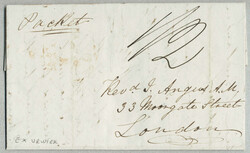 Packet
1/2
Revd J. Angus A.M.
33 Moorgate Street
London
EX VENIER